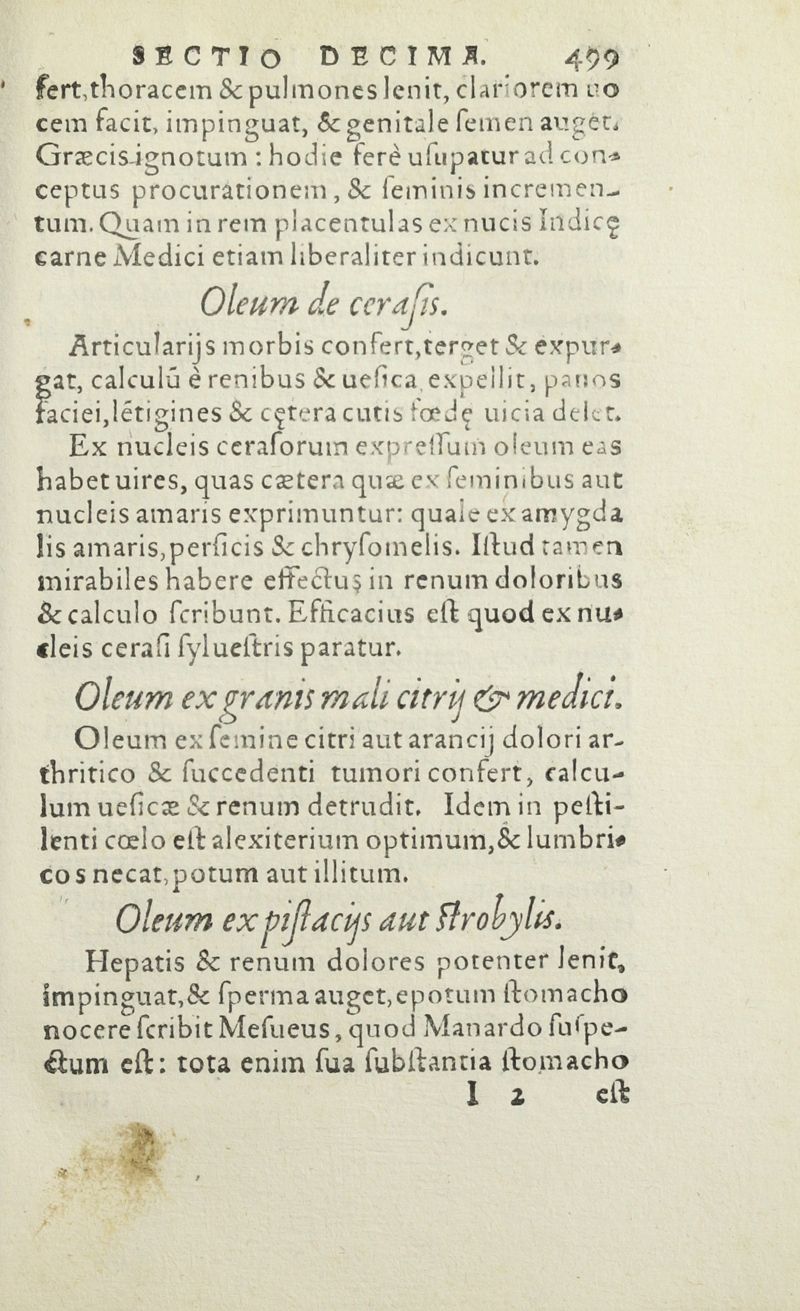 SECTIO DECIMA. 499
fert,thoracem & pulmones lenit, clariorem uo
cem facit, impinguat, & genitale ſemen auget.
Græcis ignotum : hodie ferè uſupatur ad con-
ceptus procurationem, & ſeminis incremen-
tum. Quam in rem placentulas ex nucis Indicę
carne Medici etiam liberaliter indicunt.
Oleum de ceraſis.
Articularijs morbis confert,terget & expur-
gat, calculū è renibus & ueſica expellit, panos
faciei,lētigines & cętera cutis fœdę uicia delet.
Ex nucleis ceraſorum expreſſum oleum eas
habet uires, quas cætera quæ ex ſeminibus aut
nucleis amaris exprimuntur: quale ex amygda
lis amaris,perſicis & chryſomelis. Iſtud tamen
mirabiles habere effectus in renum doloribus
& calculo ſcribunt. Efficacius eſt quod ex nu-
cleis ceraſi ſylueſtris paratur.
Oleum ex granis mali citrij & medici.
Oleum ex ſemine citri aut arancij dolori ar-
thritico & ſuccedenti tumori confert, calcu-
lum ueſicæ & renum detrudit. Idem in peſti-
lenti cœlo eſt alexiterium optimum,& lumbri-
cos necat,potum aut illitum.
Oleum ex piſtacijs aut ſtrobylis.
Hepatis & renum dolores potenter lenit,
impinguat,& ſperma auget,epotum ſtomacho
nocere ſcribit Meſueus, quod Manardo ſuſpe-
ctum eſt: tota enim ſua ſubſtantia ſtomacho
l 2 eſt